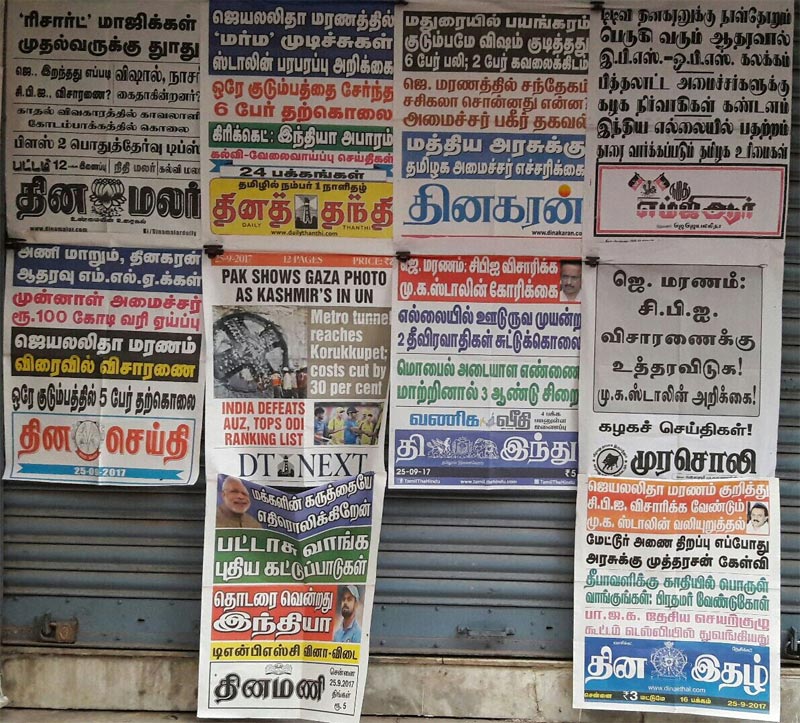 'ரிசார்ட்' மாஜிக்கள்
முதல்வருக்கு தூது
ஜெ., இறந்தது எப்படி
சி.பி.ஐ., விசாரணை?
விஷால், நாசர்
கைதாகின்றனர்?
காதல் விவகாரத்தில் காவலாளி
கோடம்பாக்கத்தில் கொலை
பிளஸ் 2 பொதுத்தேர்வு டிப்ஸ்
பட்டம் 12 பக்க இணைப்பு நிதி மலர் கல்வி மலர்
தின மலர்
உண்மையின் உரைகல்
www.dinamalar.com
/Dinamalardaily
ஜெயலலிதா மரணத்தில்
'மர்ம' முடிச்சுகள்
ஸ்டாலின் பரபரப்பு அறிக்கை
ஒரே குடும்பத்தை சேர்ந்த
6 பேர் தற்கொலை
கிரிக்கெட்: இந்தியா அபாரம்
கல்வி-வேலைவாய்ப்பு செய்திகள்
24 பக்கங்கள்
தமிழில் நம்பர் 1 நாளிதழ்
தினத் தந்தி
DAILY THANTHI
www.dailythanthi.com
மதுரையில் பயங்கரம்
குடும்பமே விஷம் குடித்தது
6 பேர் பலி; 2 பேர் கவலைக்கிடம்
ஜெ. மரணத்தில் சந்தேகம்
சசிகலா சொன்னது என்ன?
அமைச்சர் பகீர் தகவல்
மத்திய அரசுக்கு
தமிழக அமைச்சர் எச்சரிக்கை
தினகரன்
www.dinakaran.com
டிடிவி தினகரனுக்கு நாள்தோறும்
பெருகி வரும் ஆதரவால்
இ.பி.எஸ்.-ஓ.பி.எஸ். கலக்கம்
பித்தலாட்ட அமைச்சர்களுக்கு
கழக நிர்வாகிகள் கண்டனம்
இந்திய எல்லையில் பதற்றம்
தாரை வார்க்கப்படும் தமிழக உரிமைகள்
நமது
எம்.ஜி.ஆர்
அணி மாறும், தினகரன்
ஆதரவு எம்.எல்.ஏ.க்கள்
முன்னாள் அமைச்சர்
ரூ.100 கோடி வரி ஏய்ப்பு
ஜெயலலிதா மரணம்
விரைவில் விசாரணை
ஒரே குடும்பத்தில் 5 பேர் தற்கொலை
தின செய்தி
25-09-2017
25-9-2017 12 PAGES PRICE:
PAK SHOWS GAZA PHOTO
AS KASHMIR'S IN UN
Metro tunnel
reaches
Korukkupet;
costs cut by
30 per cent
INDIA DEFEATS
AUZ, TOPS ODI
RANKING LIST
DT NEXT
ஜெ. மரணம்: சிபிஐ விசாரிக்க
மு.க.ஸ்டாலின் கோரிக்கை
எல்லையில் ஊடுருவ முயன்ற
2 தீவிரவாதிகள் சுட்டுக்கொலை
மொபைல் அடையாள எண்ணை
மாற்றினால் 3 ஆண்டு சிறை
வணிக வீதி
4 பக்க
இணைப்பு
தி இந்து
25-09-17
₹5
/TamilTheHindu www.tamilthehindu.com /TamilTheHindu
ஜெ. மரணம்:
சி.பி.ஐ.
விசாரணைக்கு
உத்தரவிடுக!
மு.க.ஸ்டாலின் அறிக்கை!
கழகச் செய்திகள்!
முரசொலி
மக்களின் கருத்தையே
எதிரொலிக்கிறேன்
பட்டாசு வாங்க
புதிய கட்டுப்பாடுகள்
தொடரை வென்றது
இந்தியா
டிஎன்பிஎஸ்சி வினா-விடை
தினமணி
சென்னை
25.9.2017
திங்கள்
ரூ. 5
ஜெயலலிதா மரணம் குறித்து
சி.பி.ஐ. விசாரிக்க வேண்டும்
மு.க. ஸ்டாலின் வலியுறுத்தல்
மேட்டூர் அணை திறப்பு எப்போது
அரசுக்கு முத்தரசன் கேள்வி
தீபாவளிக்கு காதியில் பொருள்
வாங்குங்கள்: பிரதமர் வேண்டுகோள்
பா.ஜ.க. தேசிய செயற்குழு
கூட்டம் டெல்லியில் துவங்கியது
தின இதழ்
www.dinaethal.com
சென்னை ₹3 மட்டுமே 16 பக்கம் 25-9-2017